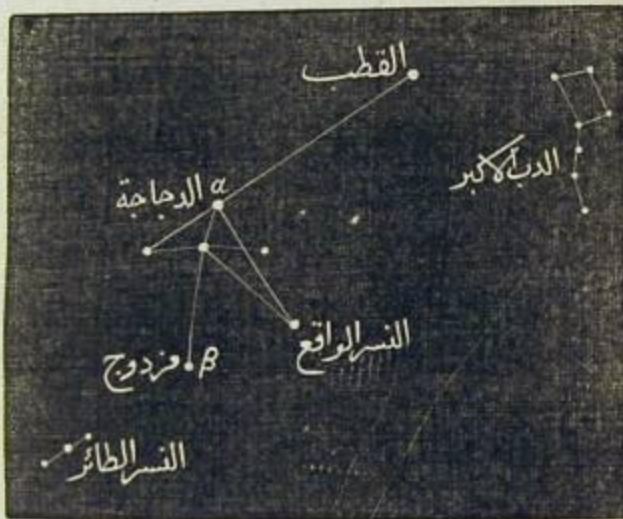 القطب
الدب الاكبر
الدجاجة α
النسر الواقع
مزدوج β
النسر الطائر